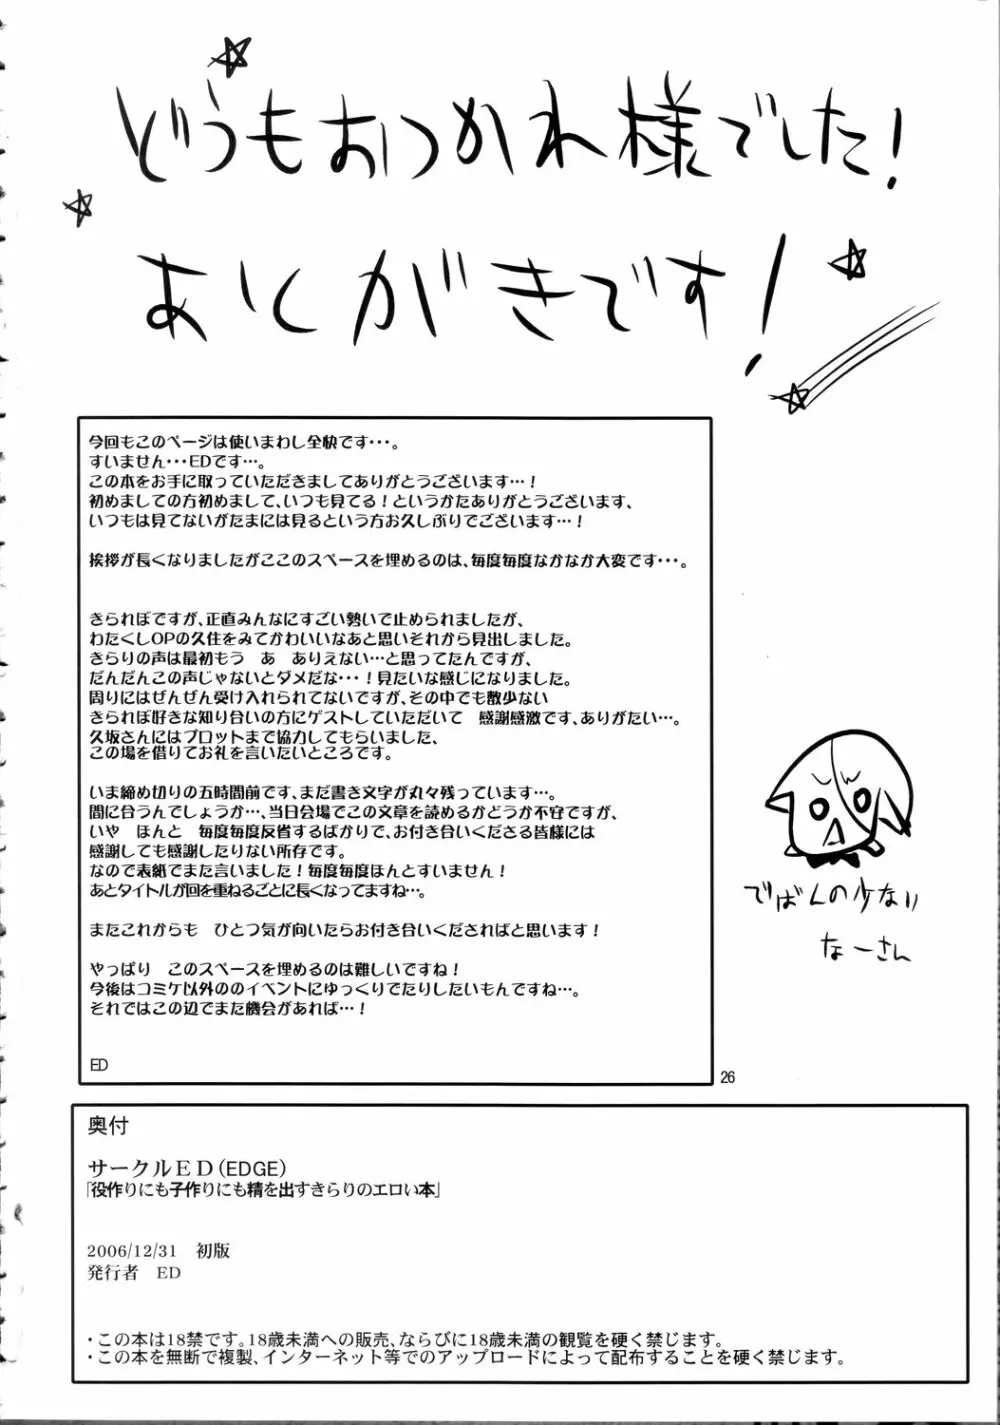 どうもおつかれ様でした!
あとがきです!
今回もこのページは使いまわし全快です･･･。
すいません･･･EDです…。
この本をお手に取っていただきましてありがとうございます…!
初めましての方初めまして、いつも見てる!というかたありがとうございます、
いつもは見てないがたまには見るという方お久しぶりでございます…!
挨拶が長くなりましたがここのスペースを埋めるのは、毎度毎度なかなか大変です･･･。
きられぼですが、正直みんなにすごい勢いで止められましたが、
わたくしOPの久住をみてかわいいなあと思いそれから見出しました。
きらりの声は最初もう　あ　ありえない…と思ってたんですが、
だんだんこの声じゃないとダメだな･･･!見たいな感じになりました。
周りにはぜんぜん受け入れられてないですが、その中でも数少ない
きられぼ好きな知り合いの方にゲストしていただいて　感謝感激です、ありがたい…。
久坂さんにはプロットまで協力してもらいました、
この場を借りてお礼を言いたいところです。
いま締め切りの五時間前です、まだ書き文字が丸々残っています…。
間に合うんでしょうか…、当日会場でこの文章を読めるかどうか不安ですが、
いや　ほんと　毎度毎度反省するばかりで、お付き合いくださる皆様には
感謝しても感謝したりない所存です。
なので表紙でまた言いました!毎度毎度ほんとすいません!
あとタイトルが回を重ねるごとに長くなってますね…。
またこれからも　ひとつ気が向いたらお付き合いくださればと思います!
やっぱり　このスペースを埋めるのは難しいですね!
今後はコミケ以外ののイベントにゆっくりでたりしたいもんですね…。
それではこの辺でまた機会があれば…!
ED
でばんの少ない
なーさん
26
奥付
サークルＥＤ(EDGE)
「役作りにも子作りにも精を出すきらりのエロい本」
2006/12/31　初版
発行者　ED
・この本は18禁です。18歳未満への販売、ならびに18歳未満の観覧を硬く禁じます。
・この本を無断で複製、インターネット等でのアップロードによって配布することを硬く禁じます。